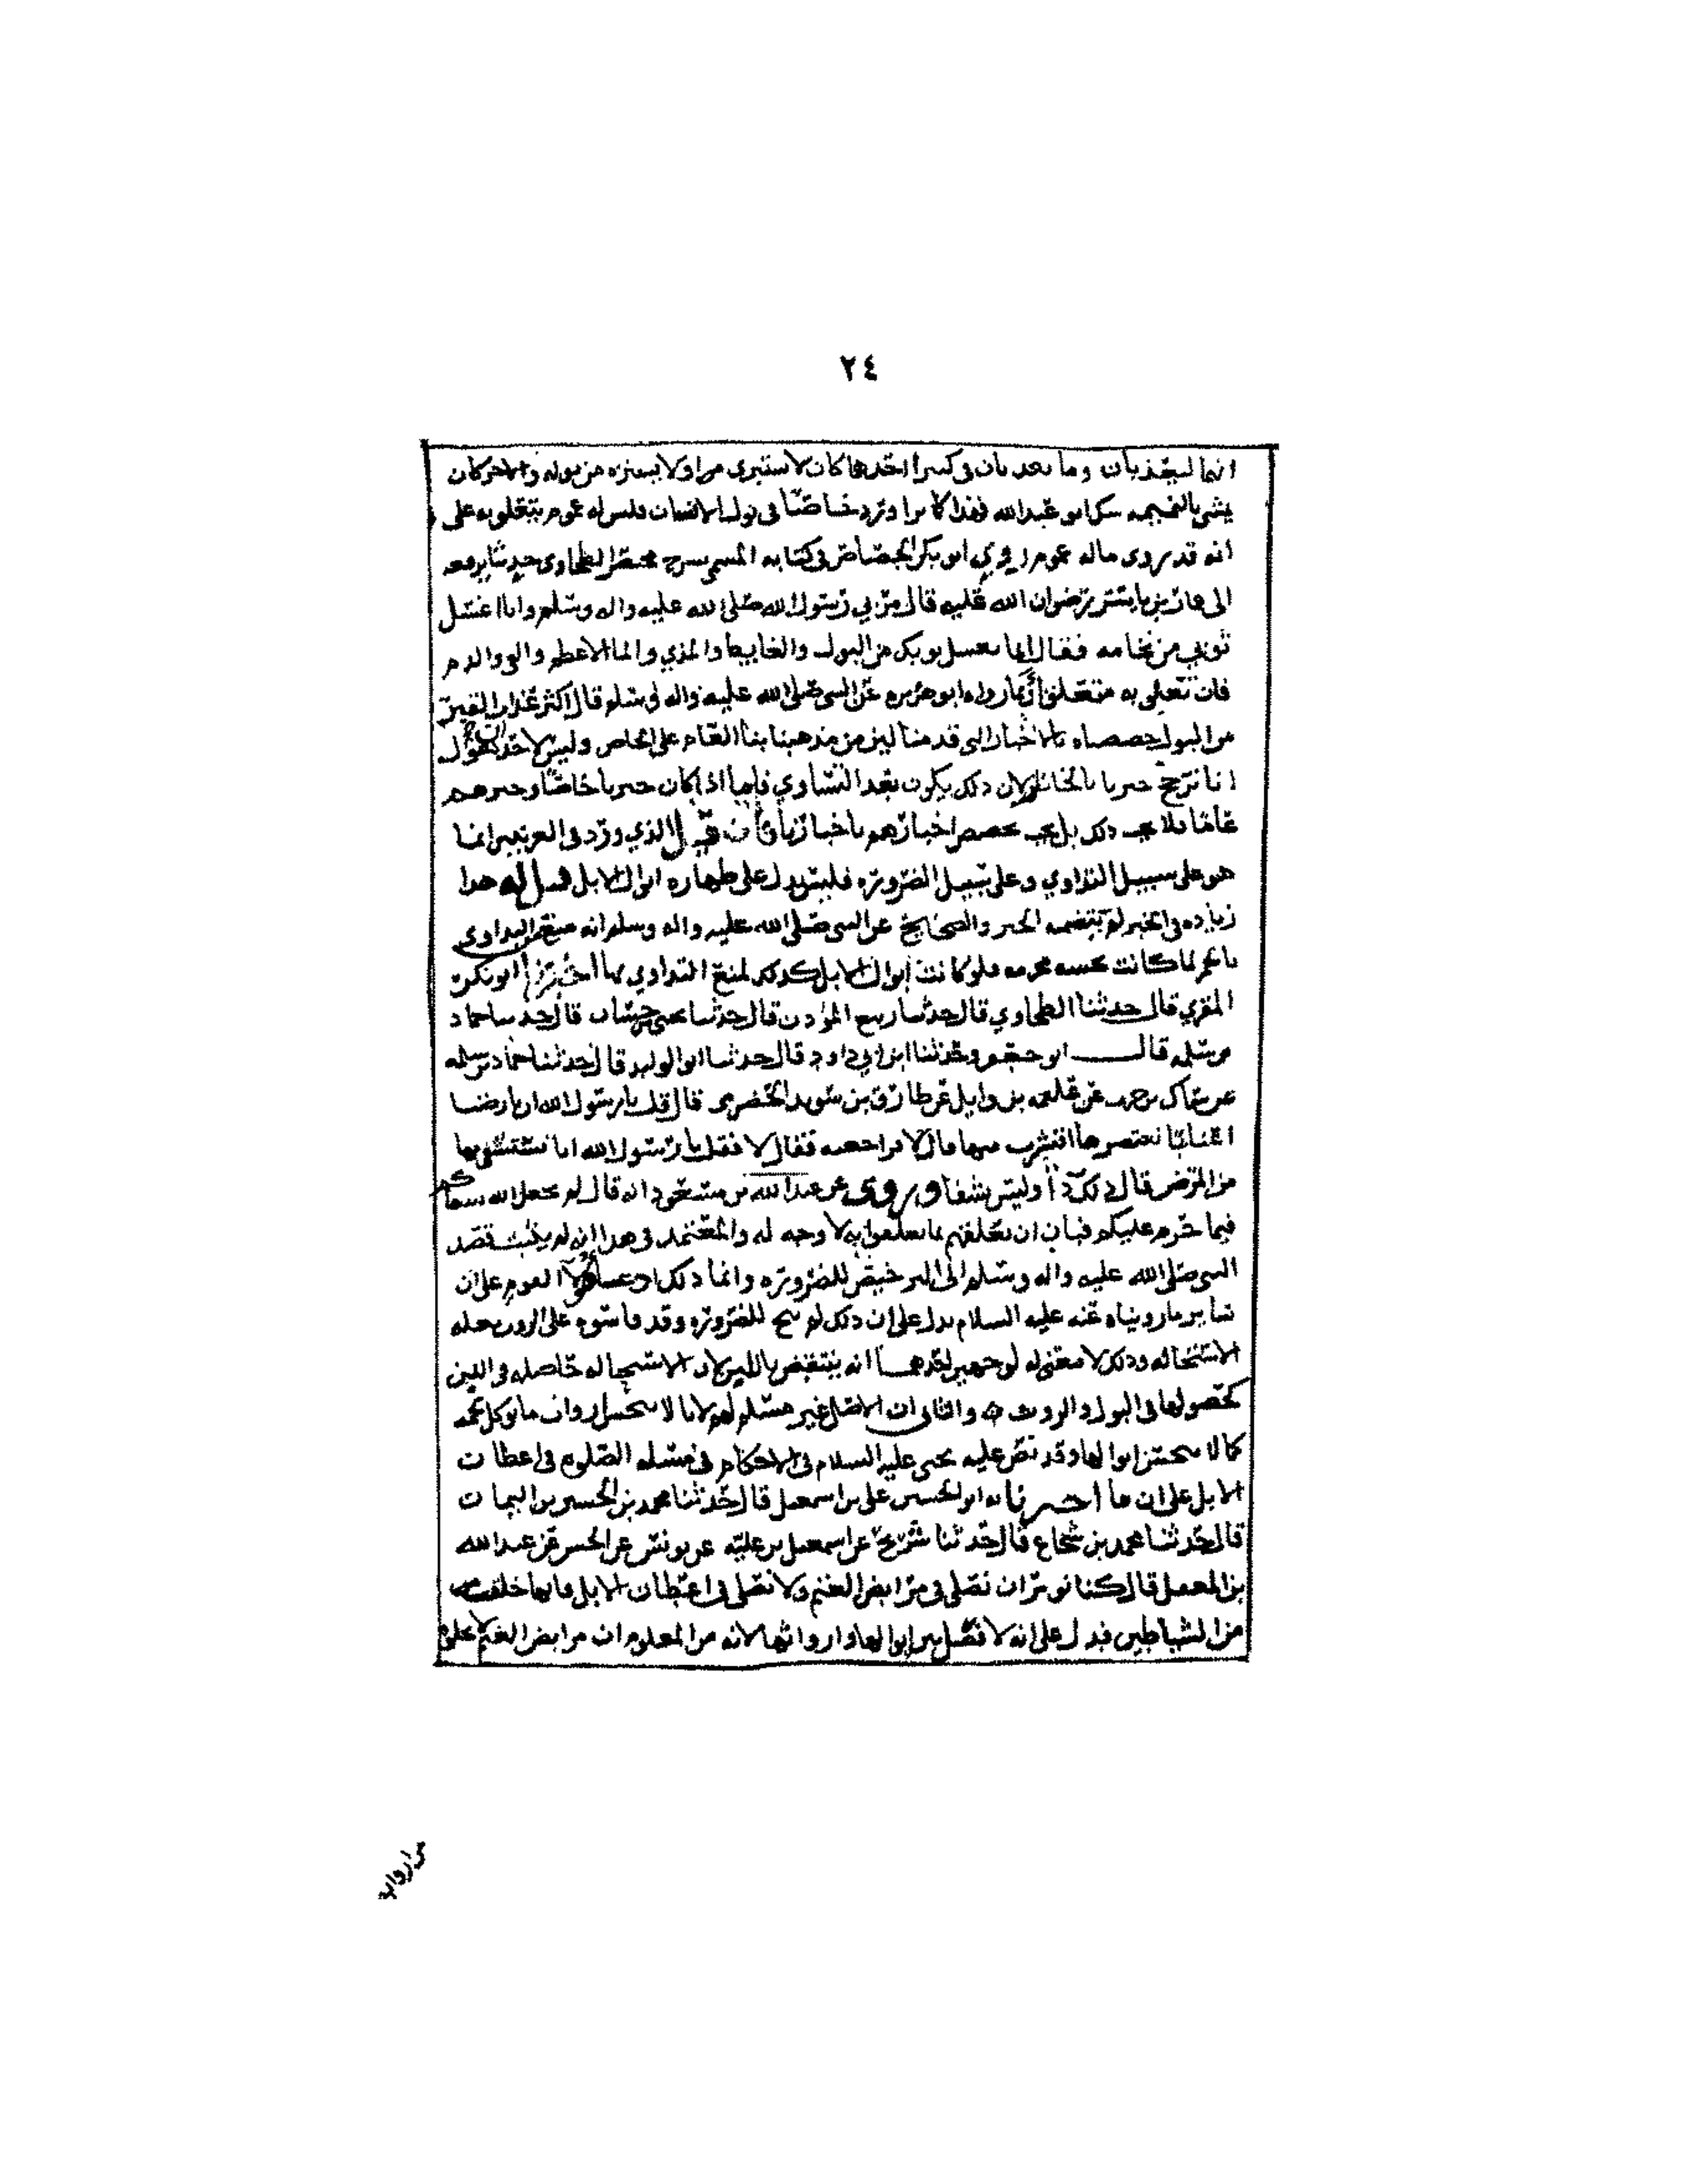 ٢٤
انهما ليعذبان وما يعذبان في كبير احدهما كان لا يستبري او لا يستنزه من بوله والاخر كان
يمشي بالنميمه عبدالله فهذا ورد خاصا في بول الانسان فليس له عموم يتعلق به على
انه قد روى ماله عموم روى ابو بكر الجصاص في كتابه المسمى بشرح مختصر الطحاوي حديثا يرفعه
الى عمار بن ياسر رضوان الله عليه قال مر بي رسول الله صلى الله عليه واله وسلم وانا اغسل
ثوبي من نخامه فقال انما تغسل ثوبك من البول والغايط والمذي والما الاعظم والقي والدم
فان تعلق به متعلق او بما رواه ابو هريره عن النبي صلى الله عليه واله وسلم قال اكثر عذاب القبر
من البول خصصناه بالاخبار التي قدمنا لان من مذهبنا بنا العام على الخاص وليس لاحد ان يقول
انا نرجح خبرنا بالحاظر لان ذلك يكون بعد التساوي فاما اذا كان خبرنا خاصا وخبرهم
عاما فلا يجب ذلك بل يجب تخصيص اخبارهم باخبارنا فان قيل الذي ورد في العرنيين انما
هو على سبيل التداوي وعلى سبيل الضروره فليس يدل على طهاره ابوال الابل قيل له هذا
زياده في الخبر لم يتضمنه الخبر والصحيح عن النبي صلى الله عليه واله وسلم انه منع من التداوي
بالخمر لما كانت نجسه محرمه فلو كانت ابوال الابل كذلك لمنع التداوي بها اخبرنا ابو بكر
المقري قال حدثنا الطحاوي قال حدثنا ربيع المؤذن قال حدثنا يحيى بن حسان قال حدثنا حماد
بن سلمه قال ابو جعفر وحدثنا ابن ابي داود قال حدثنا ابو الوليد قال حدثنا حماد بن سلمه
عن سماك بن حرب عن علقمه بن وايل عن طارق بن سويد الحضرمي قال قلت يا رسول الله ان بارضنا
اعنابا نعتصرها افنشرب منها قال لا فراجعته فقال لا فقلت يا رسول الله انا نستشفي بها
من المرض قال ذلك دا وليس بشفا وروى عن عبدالله بن مسعود انه قال لم يجعل الله شفاكم
فيما حرم عليكم فبان ان تعلقهم بما تعلقوا به لا وجه له والمعتمد في هذا انه لم يثبت قصد
النبي صلى الله عليه واله وسلم الى الترخيص للضروره وانما ذلك هؤلا القوم على ان
ساير ما رويناه عنه عليه السلام يدل على ان ذلك لم يبح للضروره وقد قاسوه على الروث بعله
الاستحاله وذلك لا معنى له لوجهين احدهما انه ينتقض باللبن لان الاستحاله حاصله في اللبن
كحصولها في البول والروث والثاني ان الاصل غير مسلم لهم لانا لا ننجس ارواث ما يوكل لحمه
كما لا ننجس ابوالها وقد نص عليه يحيى عليه السلام في الاحكام في مسئله الصلوه في اعطان
الابل على ان ما اخبرنا به ابو الحسين علي بن اسمعيل قال حدثنا محمد بن الحسين بن اليمان
قال حدثنا محمد بن شجاع قال حدثنا شريح عن اسمعيل بن عليه عن يونس عن الحسن عن عبدالله
بن المغفل قال كنا نومر ان نصلي في مرابض الغنم ولا نصلي في اعطان الابل فانها خلقت
من الشياطين فدل على انه لا فصل بين ابوالها وارواثها لانه من المعلوم ان مرابض الغنم لا تخلو
من ارواث